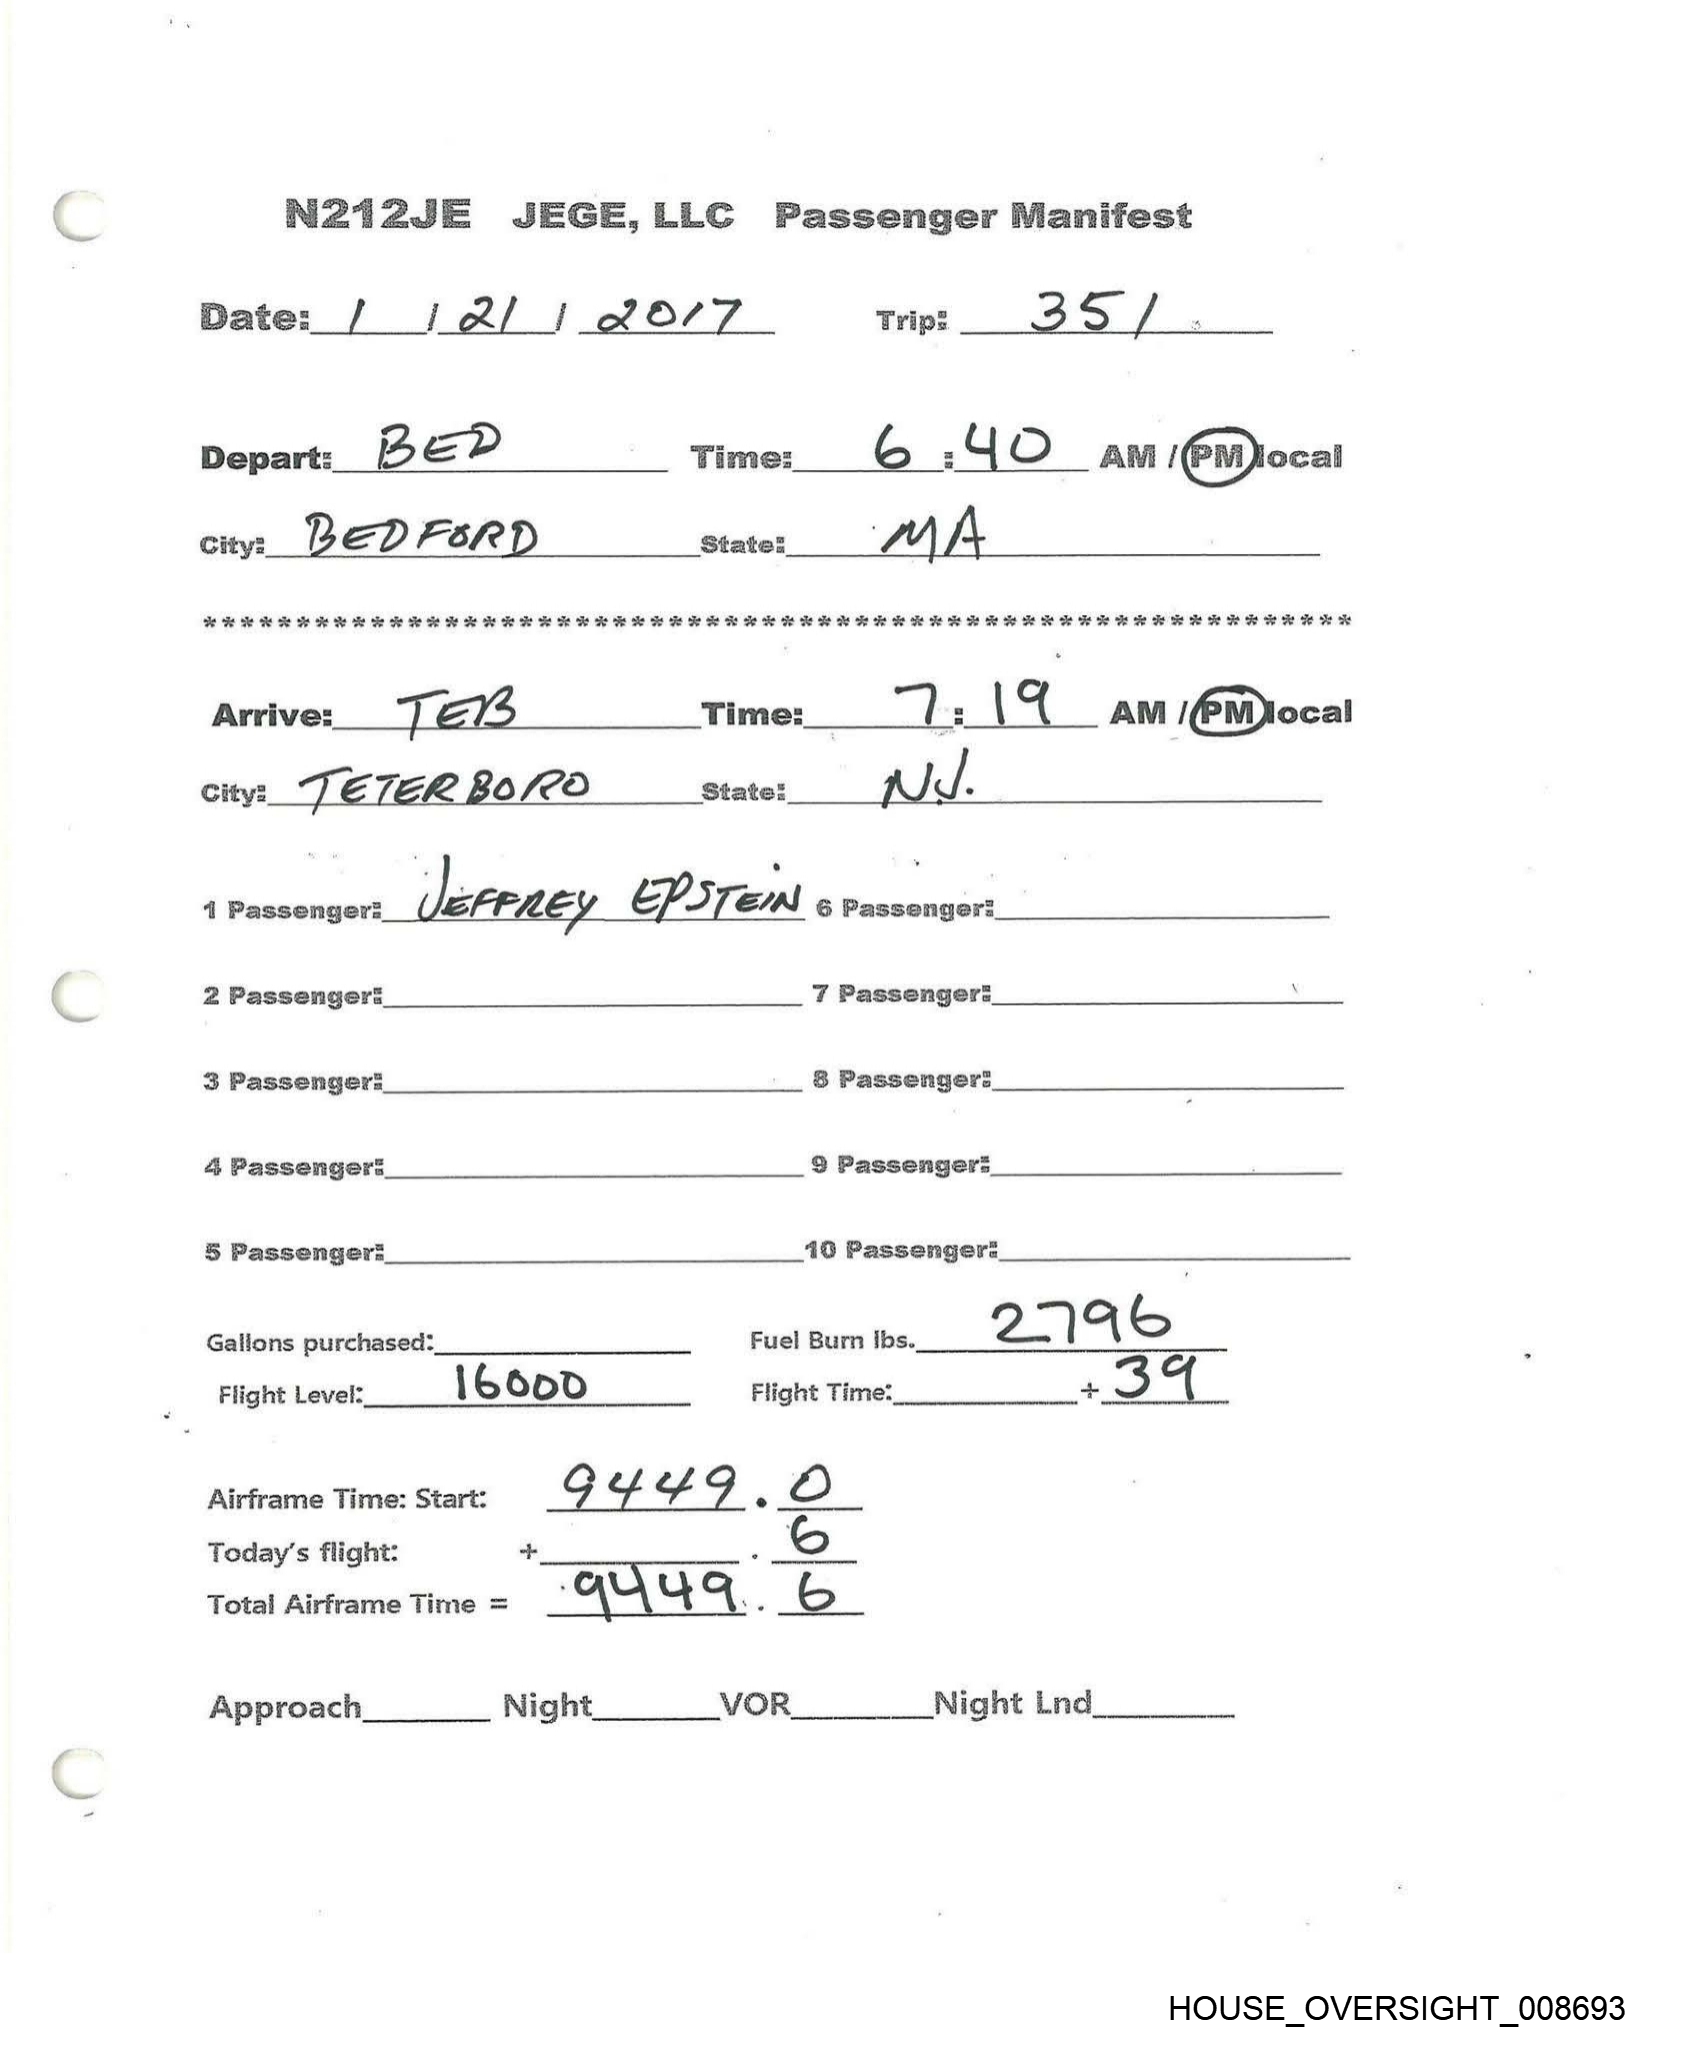 N212JE JEGE, LLC Passenger Manifest
Date: 1 / 21 / 2017 Trip: 351
Depart: BED Time: 6:40 AM / PM local
City: BEDFORD State: MA
**************************************************************
Arrive: TEB Time: 7:19 AM / PM local
City: TETERBORO State: NJ.
1 Passenger: JEFFREY EPSTEIN 6 Passenger:
2 Passenger: 7 Passenger:
3 Passenger: 8 Passenger:
4 Passenger: 9 Passenger:
5 Passenger: 10 Passenger:
Gallons purchased: Fuel Burn lbs. 2796
Flight Level: 16000 Flight Time: + 39
Airframe Time: Start: 9449.0
Today's flight: + . 6
Total Airframe Time = 9449.6
Approach Night VOR Night Lnd
HOUSE_OVERSIGHT_008693